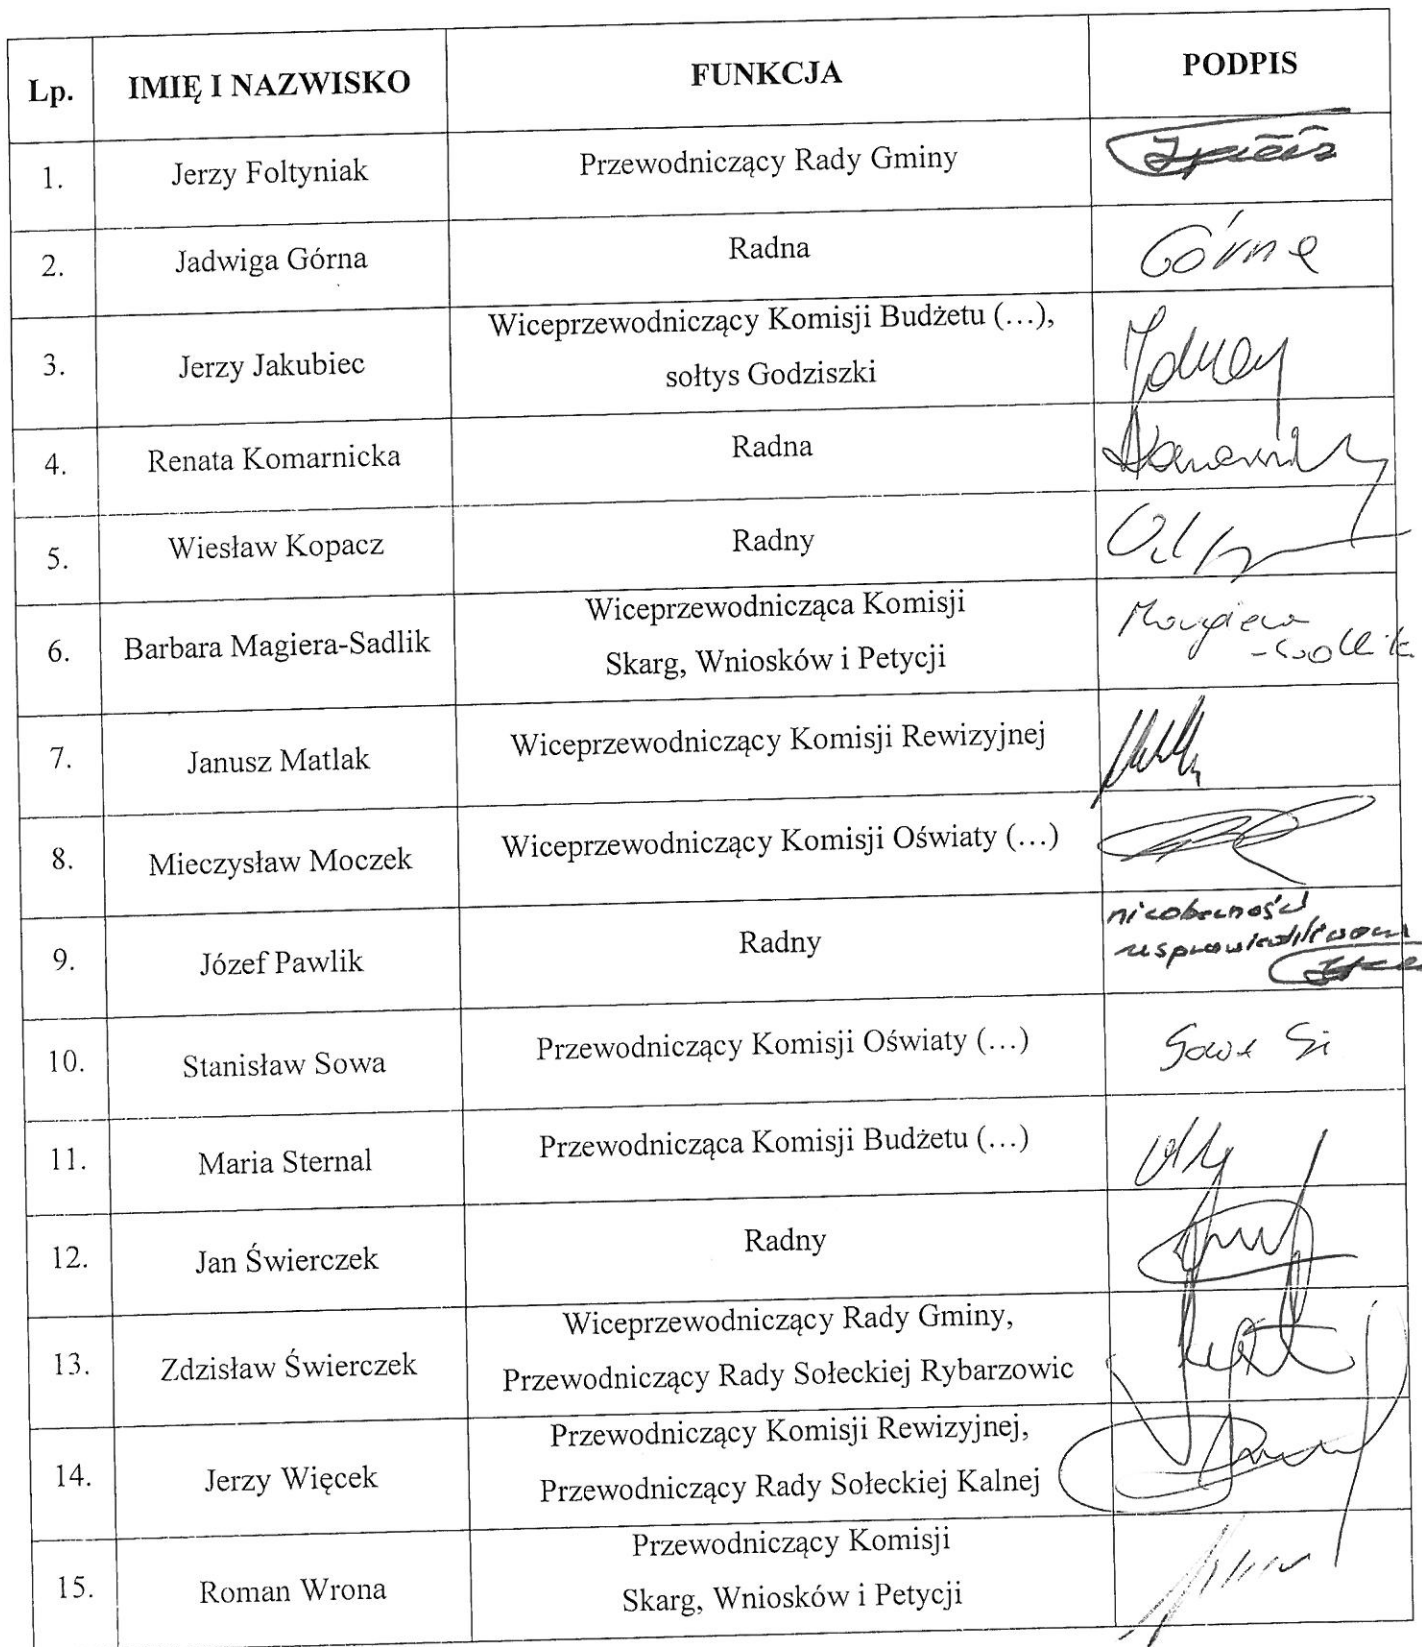 Lp. IMIĘ I NAZWISKO FUNKCJA PODPIS
1. Jerzy Foltyniak Przewodniczący Rady Gminy
2. Jadwiga Górna Radna Górna
3. Jerzy Jakubiec Wiceprzewodniczący Komisji Budżetu (…),
sołtys Godziszki
4. Renata Komarnicka Radna
5. Wiesław Kopacz Radny
6. Barbara Magiera-Sadlik Wiceprzewodnicząca Komisji Magiera
Skarg, Wniosków i Petycji -Sadlik
7. Janusz Matlak Wiceprzewodniczący Komisji Rewizyjnej
8. Mieczysław Moczek Wiceprzewodniczący Komisji Oświaty (…)
9. Józef Pawlik Radny nieobecność
10. Stanisław Sowa Przewodniczący Komisji Oświaty (…) Sowa St
11. Maria Sternal Przewodnicząca Komisji Budżetu (…)
12. Jan Świerczek Radny
13. Zdzisław Świerczek Wiceprzewodniczący Rady Gminy,
Przewodniczący Rady Sołeckiej Rybarzowic
14. Jerzy Więcek Przewodniczący Komisji Rewizyjnej,
Przewodniczący Rady Sołeckiej Kalnej
15. Roman Wrona Przewodniczący Komisji
Skarg, Wniosków i Petycji